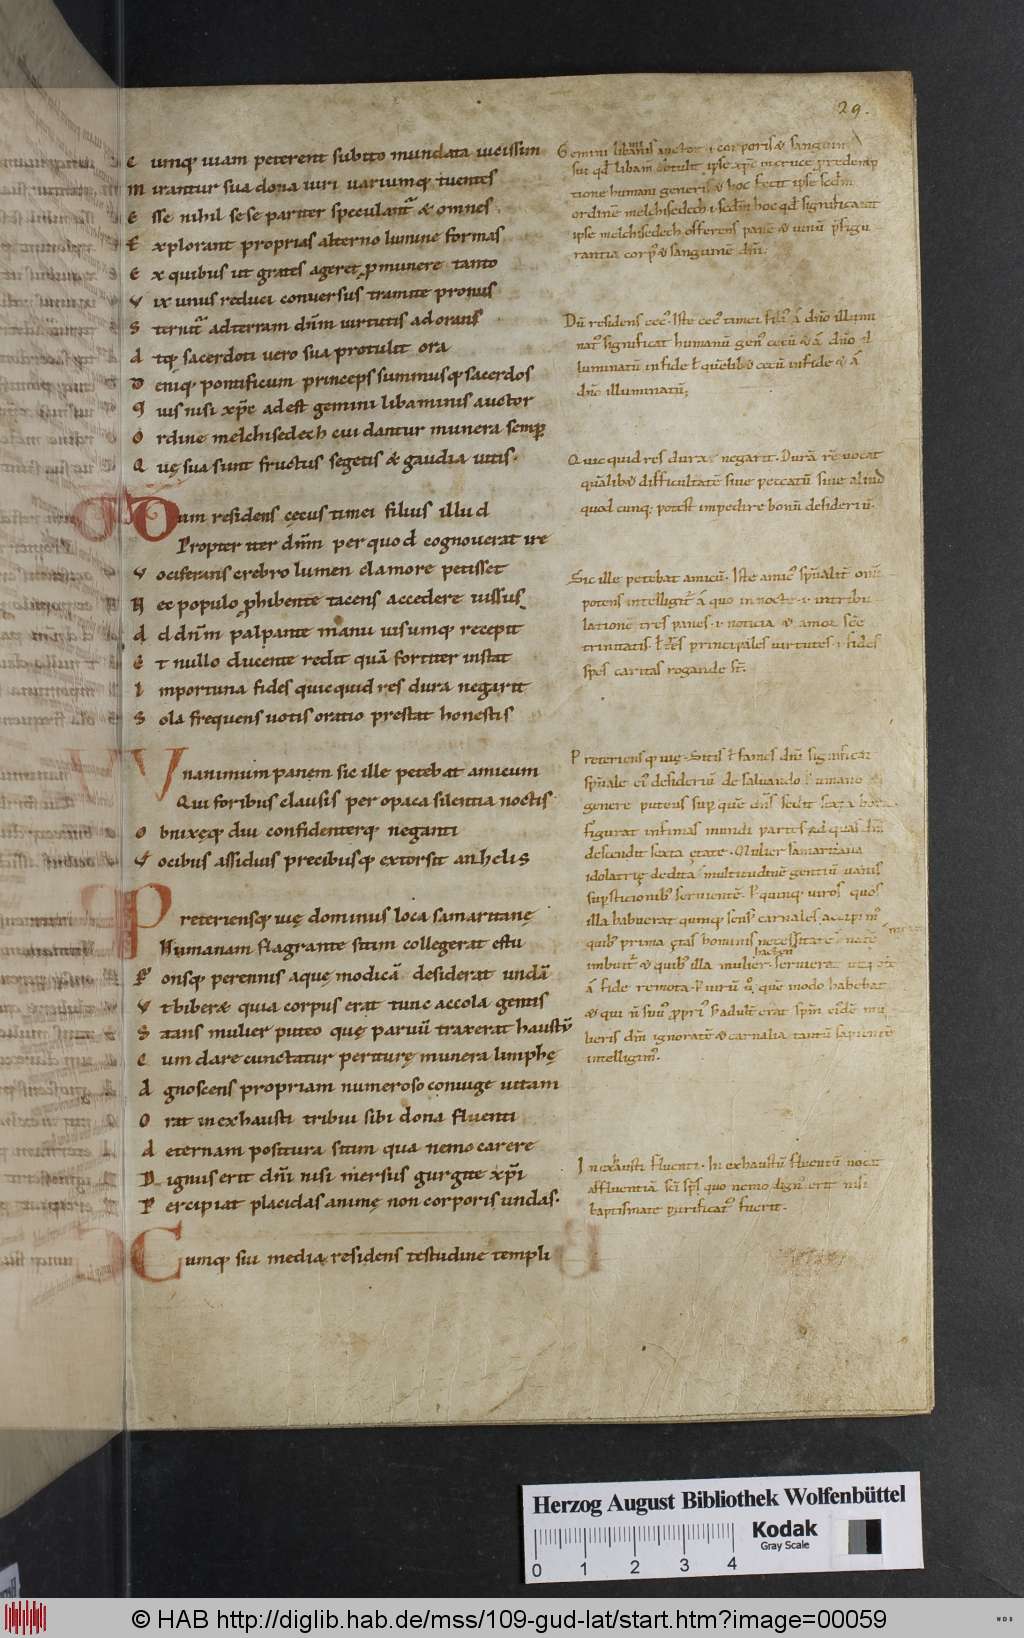 29.
Cumq; uiam peterent subito mundata uicissim
Mirantur sua dona uiri uariumq; tuentes
Esse nihil sese pariter speculant̃ & omnes
Explorant proprias alterno lumine formas
Ex quibus ut grates ageret p munere tanto
Vix unus reduci conuersus tramite pronus
Sternit̃ ad terram dñm uirtutis adorans
Atq; sacerdoti uero sua protulit ora
Deniq; pontificum princeps summusq; sacerdos
Quis nisi xp̄e adest gemini libaminis auctor
Ordine melchisedech cui dantur munera semp
Quę sua sunt fructus segetis & gaudia uitis.
Dum residens cęcus timei filius illud
Propter iter dñm per quod cognouerat ire
Vociferans crebro lumen clamore petisset
Nec populo phibente tacens accedere iussus
Ad dñm palpante manu uisumq; recepit
Et nullo ducente redit quā fortiter instat
Importuna fides quicquid res dura negarit
Sola frequens uotis oratio prestat honestis
Vnanimum panem sic ille petebat amicum
Qui foribus clausis per opaca silentia noctis
Obnixęq; diu confidenterq; neganti
Vocibus assiduis precibusq; extorsit anhelis
Pretereriensq; uię dominus loca samaritanę
Humanam flagrante sitim collegerat estu
Fonsq; perennis aquę modicā desiderat undā
Vt biberæ quia corpus erat tunc accola gentis
Stans mulier puteo quę paruū traxerat haustū
Cum dare cunctatur periturę munera limphę
Agnoscens propriam numeroso coniuge uitam
Orat inexhausti tribui sibi dona fluenti
Aeternam positura sitim qua nemo carere
Dignus erit dñi nisi mersus gurgite xp̄i
Percipiat placidas animę non corporis undas.
Cumq; sui media residens testudine templi
Gemini libaminis auctor .i. corporis & sanguin
sui qđ libam obtulit ipse xp̄c in cruce p redemp
tione humani generis & hoc fecit ipse scdm̄
ordinē melchisedech .i. scdm̄ hoc qđ significauit
ipse melchisedech offerens panē & uinū p̄figu
rantia corp; & sanguinē dñi.
Dū residens cęc;. Iste cęc; timei fili; a dño illumi
nat; significat humanū gen; cecū & a dño il
luminatū in fide
dño illuminatū;
Quicquid res dura negarit. Durā rē uocat
qualib& difficultatē siue peccatū siue aliud
quod cunq; potest impedire bonū desideriū.
Sic ille petebat amicū. Iste amic; sp̄ualit̃ omī
potens intelligit̃ a quo in nocte .i. in tribu
latione tres panes .i. noticia & amor scē
trinitatis principales uirtutes .i. fides
spes caritas rogande st̄.
Pretereriensq; uię. Sitis dñi significat
sp̄uale ei; desideriū de saluando humano
genere puteus sup quē dñs sedit sexta hora
figurat infimas mundi partes ad quas dñs
descendit sexta ętate. Mulier samaritana
idolatrię dedita multitudinē gentiū uanis
supsticionib; seruientē. quinq; uiros quos
illa habuerat quinq; sens; carnales accipim;
quib; prima ętas hominis necessitate
imbuit̃ & quib; illa mulier hacten; seruierat
a fide remota. quē modo habebat
& qui nō suus ppri; adult̃ erat
dñi ignorantē & carnalia tantū sapientē
intelligim;.
Inexhausti fluenti. Inexhaustū fluentū uocat
affluentiā sci sps quo nemo dign; erit nisi
baptismate purificat; fuerit.
Herzog August Bibliothek Wolfenbüttel
0 1 2 3 4
Kodak
Gray Scale
© HAB http://diglib.hab.de/mss/109-gud-lat/start.htm?image=00059
WDB